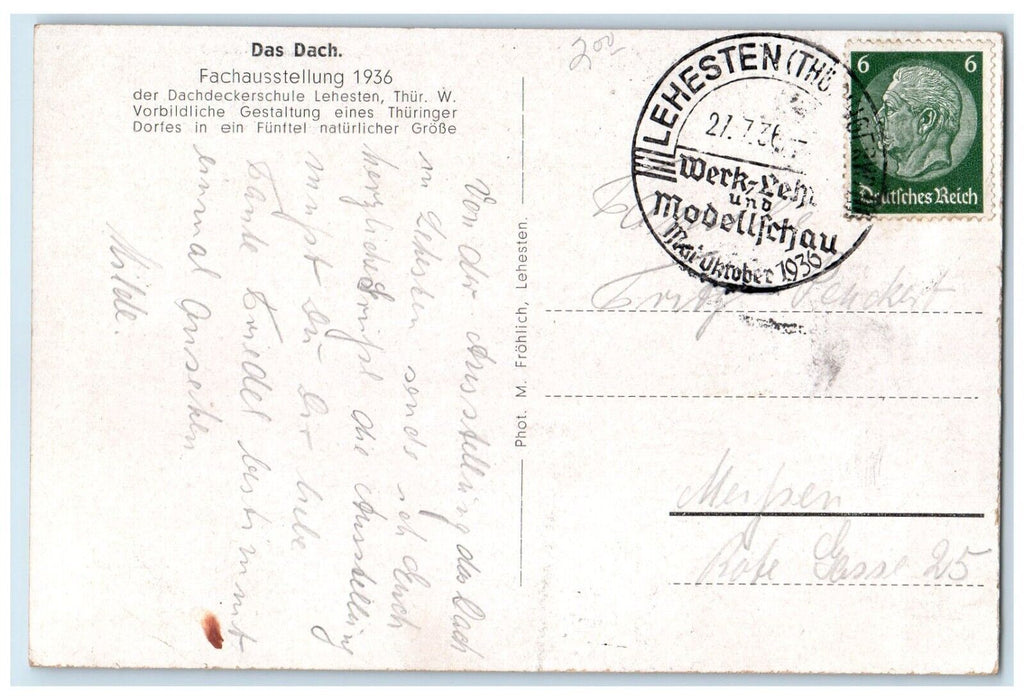 Das Dach.
Fachausstellung 1936
der Dachdeckerschule Lehesten, Thür. W.
Vorbildliche Gestaltung eines Thüringer
Dorfes in ein Fünftel natürlicher Größe
Von der Ausstellung das Dach
in Lehesten sende ich Euch
herzliche Grüße die Ausstellung
mußt Du Dir liebe
Tante Friedel bestimmt
einmal ansehen
Hilde.
Phot. M. Fröhlich, Lehesten.
200
LEHESTEN (THÜR
27.7.36
Werk-Lehr
und
Modellschau
Mai-Oktober 1936
6 6
Deutsches Reich
Meißen
Rote Gasse 25